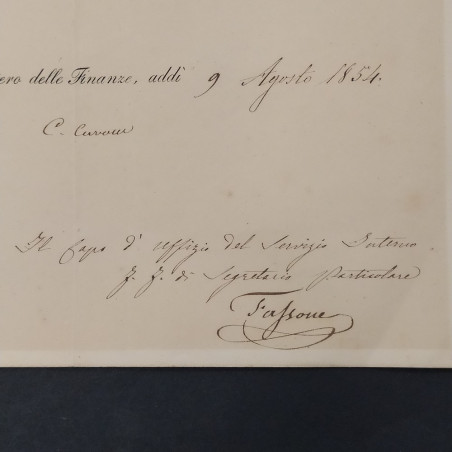 ero delle Finanze, addì 9 Agosto 1854.
C. Cavour
Il Capo d'uffizio del Servizio Interno.
F. F. di Segretario Particolare
Fassone